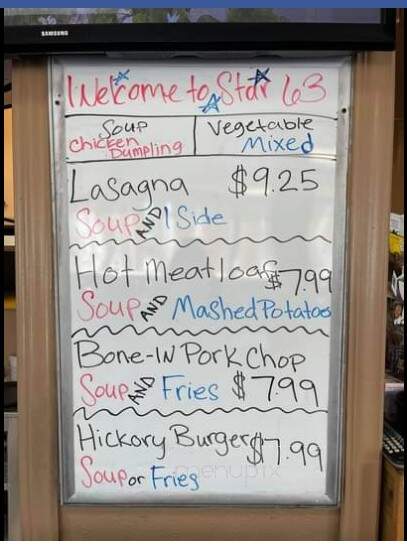 SAMSUNG
Welcome to Star 63
Soup
Chicken
Dumpling
Vegetable
Mixed
Lasagna $9.25
Soup AND 1 Side
Hot Meatloaf $7.99
Soup AND Mashed Potatoes
Bone-IN Pork Chop
Soup AND Fries $7.99
Hickory Burger $7.99
Soup or Fries
menupix